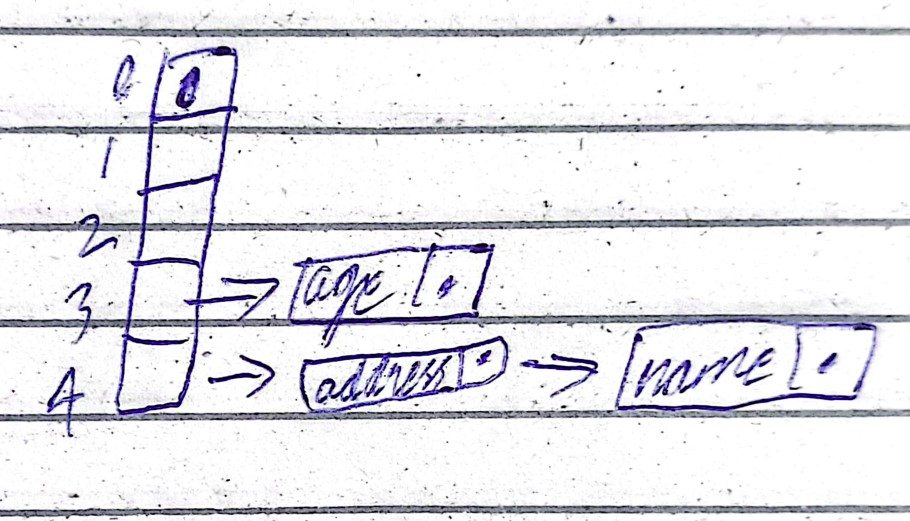 0
1
2
3 age
4 address name